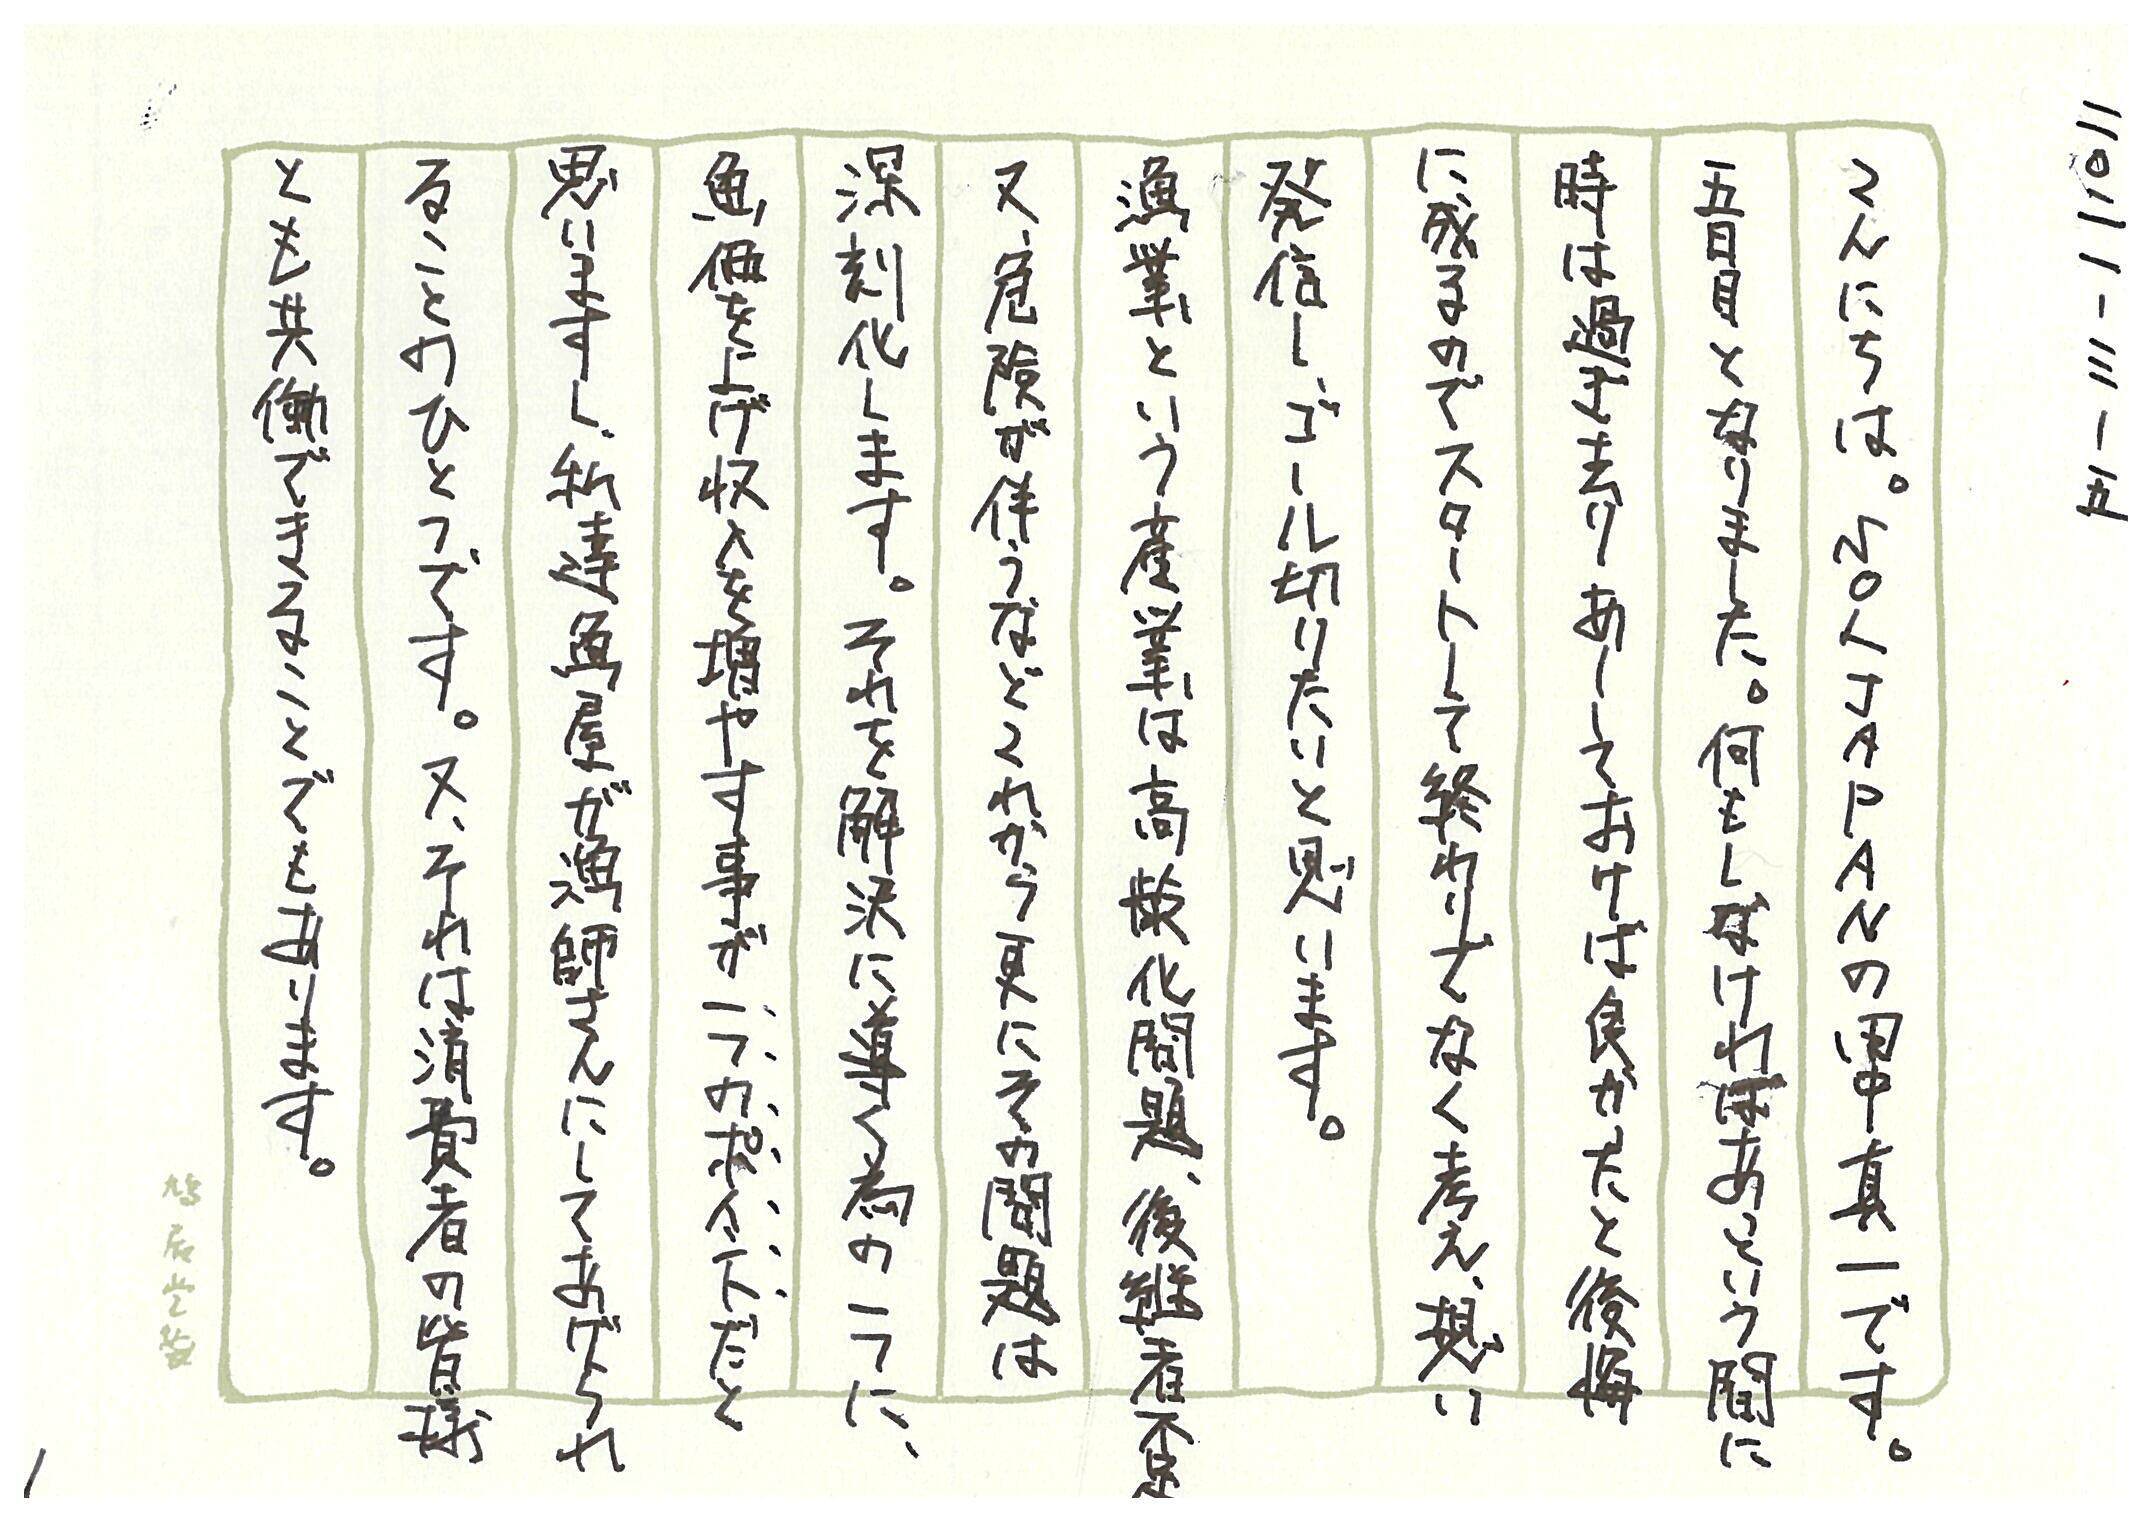 二〇二一-三-五
こんにちは。
JAPANの田中真一です。
五日目となりました。何もしなければあっという間に
時は過ぎ去りあーしておけば良かったと後悔
に成るのでスタートして終わりでなく考え、想い
発信し、ゴール切りたいと思います。
漁業という産業は高齢化問題、後継者不足
又、危険が伴うなどこれから更にその問題は
深刻化します。それを解決に導く為の一つに、
魚価を上げ収入を増やす事が一つのポイントだと
思いますし、私達魚屋が漁師さんにしてあげられ
ることのひとつです。又、それは消費者の皆様
とも共働できることでもあります。
鳩居堂製